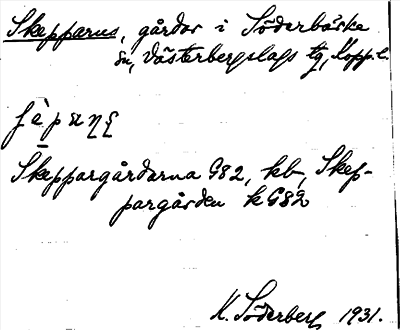 Skepparus, gårdar i Söderbärke
sn, Västerbergslags tg, Kopp. l.
Skeppargårdarna G82, kb, Skep-
pargården k G82
K. Söderberg 1931.